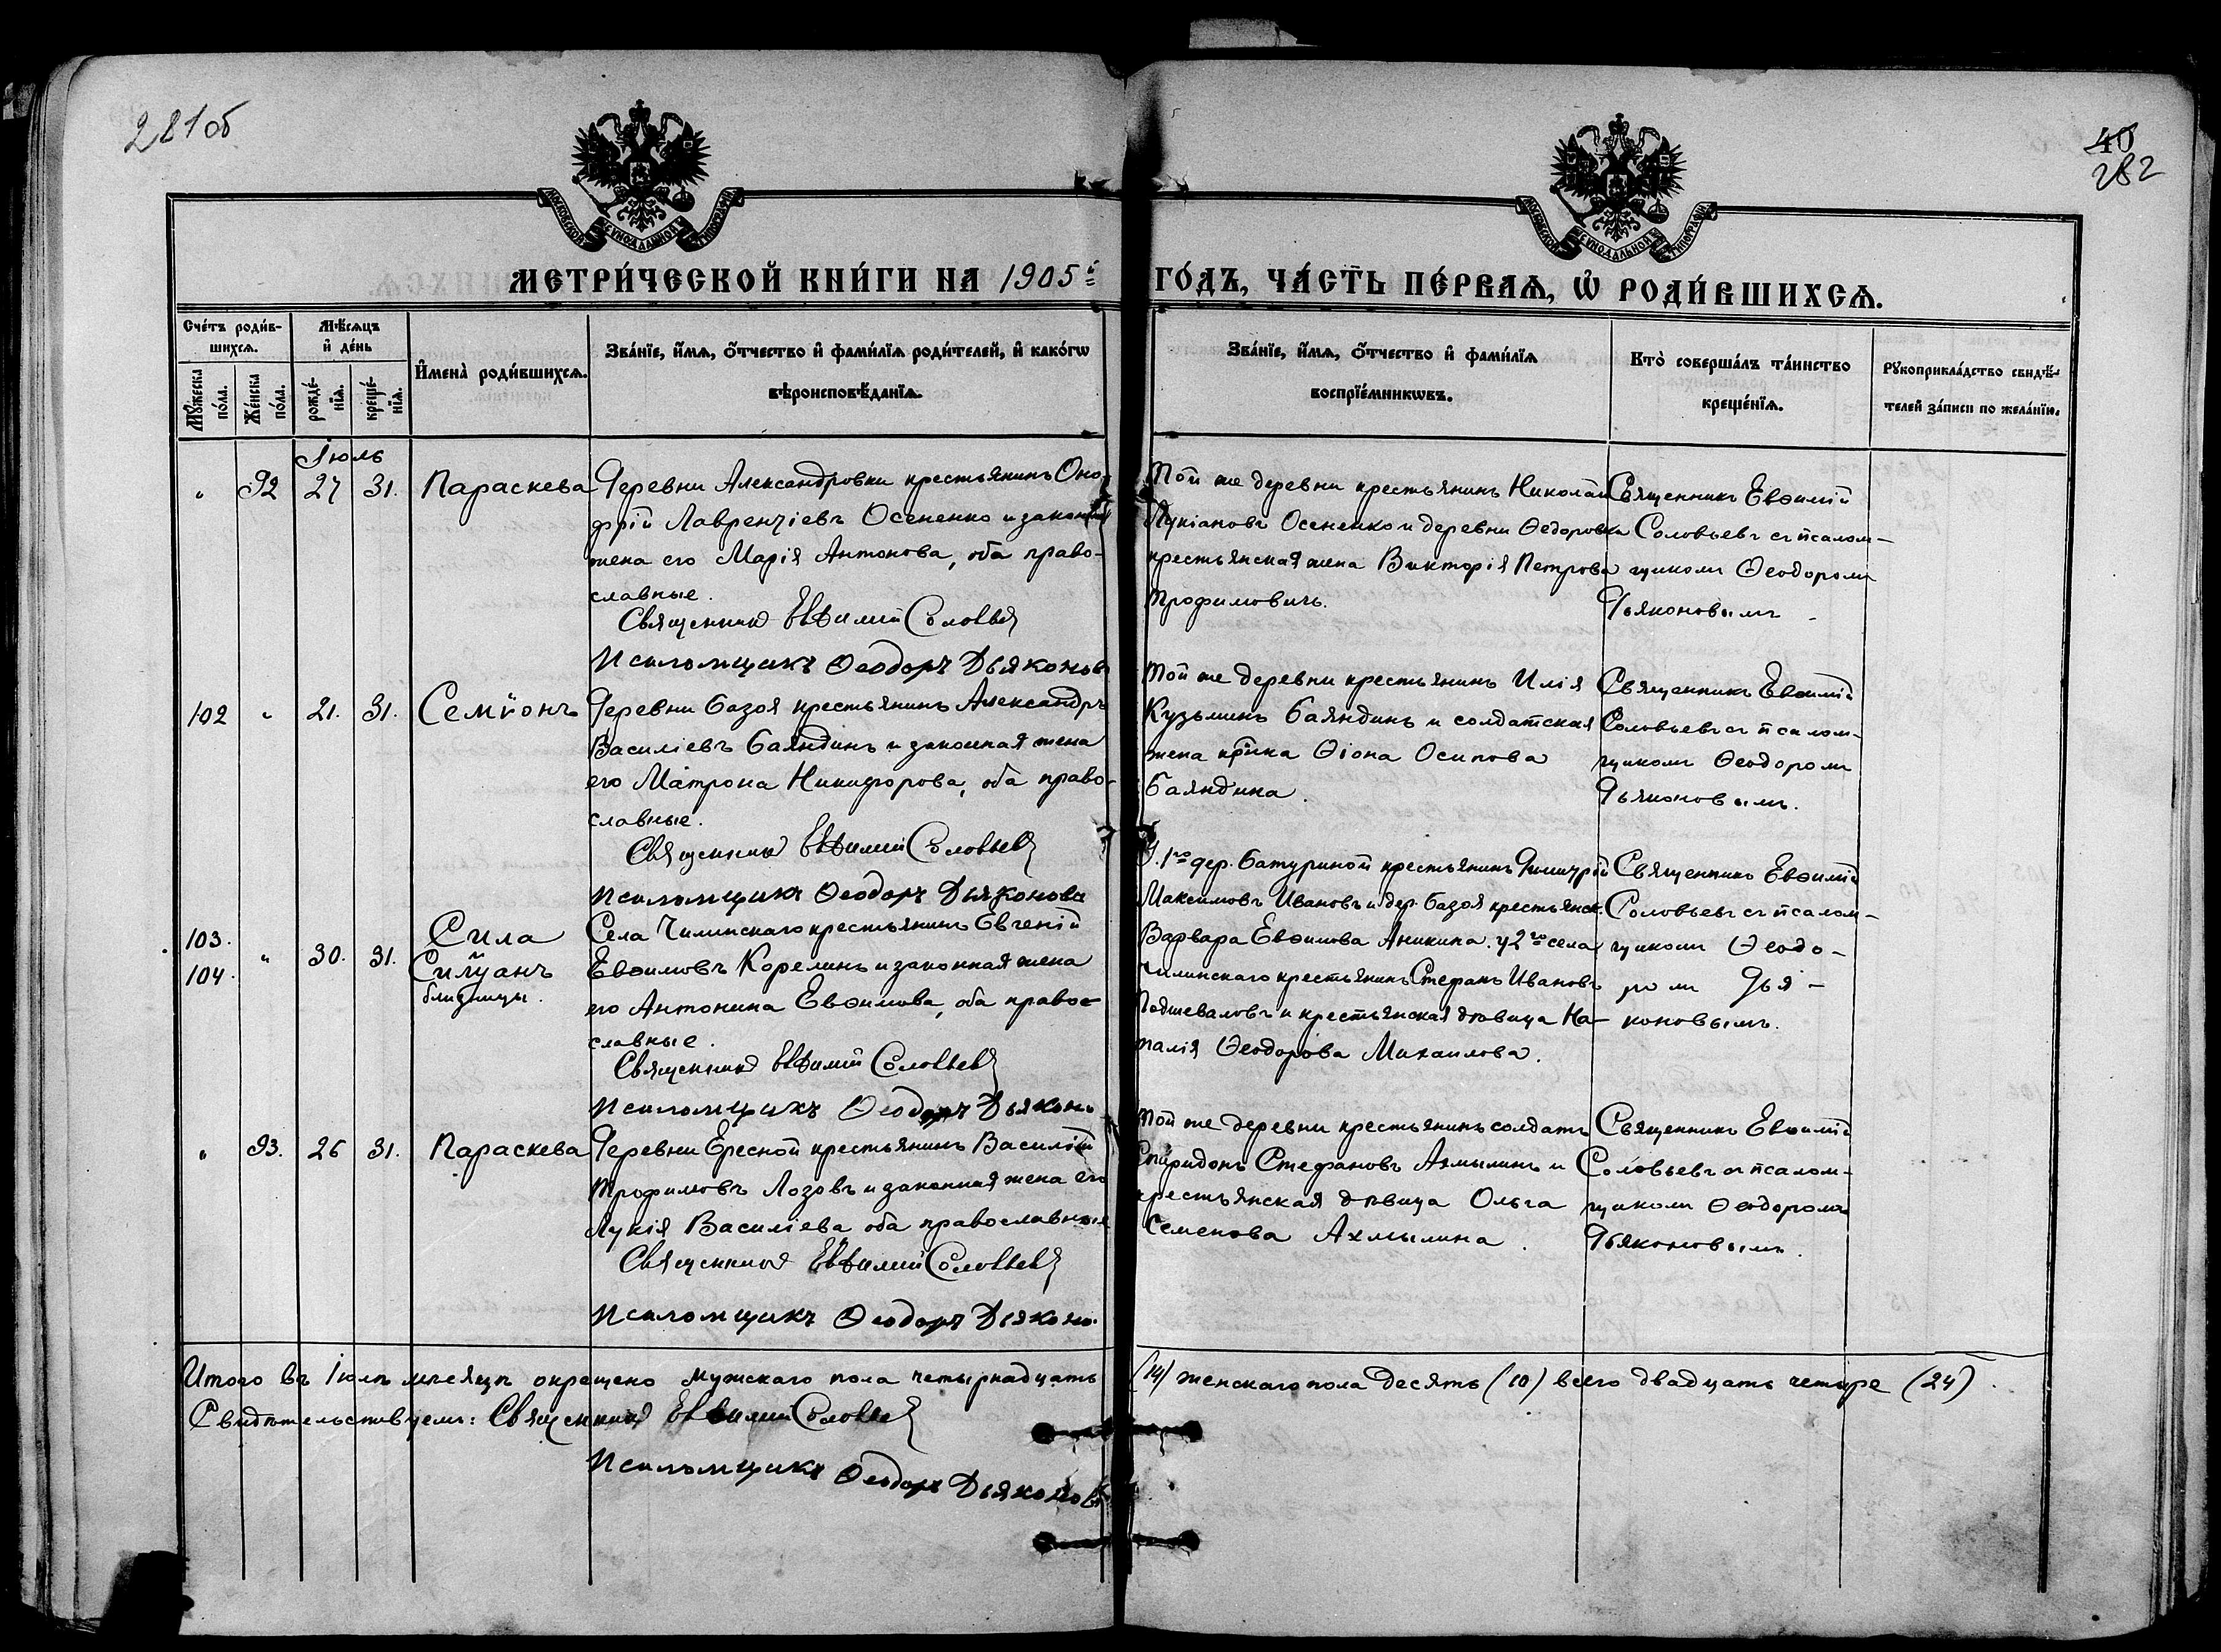 281об
40
282
МОСКОВСКОЙ СѴНОДАЛЬНОЙ ТИПОГРАФІИ
МОСКОВСКОЙ СѴНОДАЛЬНОЙ ТИПОГРАФІИ
МЕТРИ́ЧЕСКОЙ КНИ́ГИ НА 1905й ГО́ДЪ, ЧА́СТЬ ПЕ́РВАѦ, Ѡ҆ РОДИ́ВШИХСѦ.
Сче́тъ роди́в-
шихсѧ.
Мѣ́сѧцъ
и҆ де́нь
И҆мена̀ роди́вшихсѧ.
Зва́нїе, и҆́мѧ, ѻ҆́тчество и҆ фами́лїѧ роди́телей, и҆ како́гѡ
вѣроисповѣ́данїѧ.
Зва́нїе, и҆́мѧ, ѻ҆́тчество и҆ фами́лїѧ
воспрїе́мникѡвъ.
Кто̀ соверша́лъ та́инство
креще́нїѧ.
Рꙋкоприкла́дство свидѣ́-
телей за́писи по жела́нїю.
Мꙋ́жеска
по́ла.
Же́нска
по́ла.
рожде́-
нїѧ.
креще́-
нїѧ.
Іюль
" 92 27 31. Параскева
Деревни Александровки крестьянинъ Оно-
фрій Лаврентіевъ Осененко и законная
жена его Марія Антонова, оба право-
славные.
Священникъ Евѳимій Соловьевъ
Псаломщикъ Ѳеодоръ Дьяконовъ
Той же деревни крестьянинъ Николай
Лукіановъ Осененко и деревни Ѳедоровки
крестьянская жена Викторія Петрова
Трофимовичъ.
Священникъ Евѳимій
Соловьевъ съ псалом-
щикомъ Ѳеодоромъ
Дьяконовымъ
102 " 21. 31. Семіонъ
Деревни Базоя крестьянинъ Александръ
Василіевъ Баяндинъ и законная жена
его Матрона Никифорова, оба право-
славные.
Священникъ Евѳимій Соловьевъ
Псаломщикъ Ѳеодоръ Дьяконовъ
Той же деревни крестьянинъ Илія
Кузьминъ Баяндинъ и солдатская
жена Ѳіона Осипова
Баяндина.
Священникъ Евѳимій
Соловьевъ съ псалом-
щикомъ Ѳеодоромъ
Дьяконовымъ.
103.
104.
" 30. 31.
Сила
Силуанъ
близнецы.
Села Чилинскаго крестьянинъ Евгеній
Евѳимовъ Корелинъ и законная жена
его Антонина Евѳимова, оба правос-
славные.
Священникъ Евѳимій Соловьевъ
Псаломщикъ Ѳеодоръ Дьяконо
У 1го дер. Батуриной крестьянинъ Димитрій
Максимовъ Ивановъ и дер. Базоя крестьянск.
Варвара Евѳимова Аникина. у 2го села
Чилинскаго крестьянинъ Стефанъ Ивановъ
Подшеваловъ и крестьянская дѣвица На-
талія Ѳеодорова Михаилова.
Священникъ Евѳимій
Соловьевъ съ псалом-
щикомъ Ѳеодо-
ромъ Дья-
коновымъ.
" 93. 26 31. Параскева
Деревни Ересной крестьянинъ Василій
Трофимовъ Лозовъ и законная жена его
Лукія Василіева оба православные
Священникъ Евѳимій Соловьевъ
Псаломщикъ Ѳеодоръ Дьяконо.
Той же деревни крестьянинъ солдатъ
Спиридонъ Стефановъ Ахмылинъ и
крестьянская дѣвица Ольга
Семенова Ахмылина.
Священникъ Евѳимій
Соловьевъ съ псалом-
щикомъ Ѳеодоромъ
Дьяконовымъ.
Итого въ Іюлѣ мѣсяцѣ окрещено мужскаго пола четырнадцать (14) женскаго пола десять (10) всего двадцать четыре (24).
Свидѣтельствуемъ: Священникъ Евѳимій Соловьевъ
Псаломщикъ Ѳеодоръ Дьяконовъ